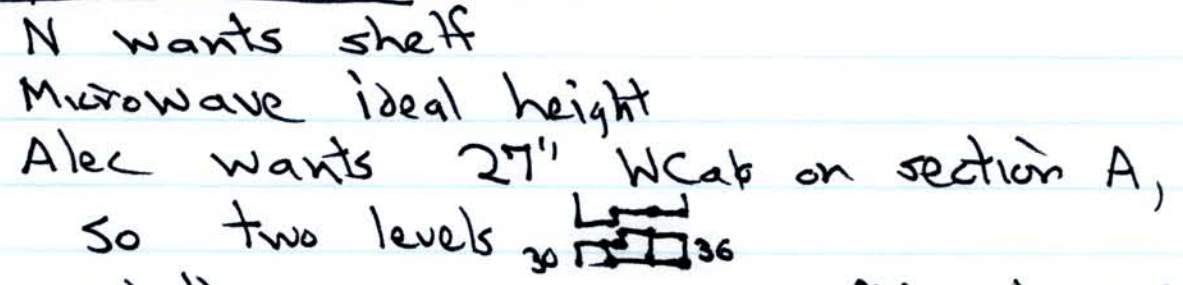 N wants shelf
Microwave ideal height
Alec wants 27" WCab on section A,
so two levels 30 36